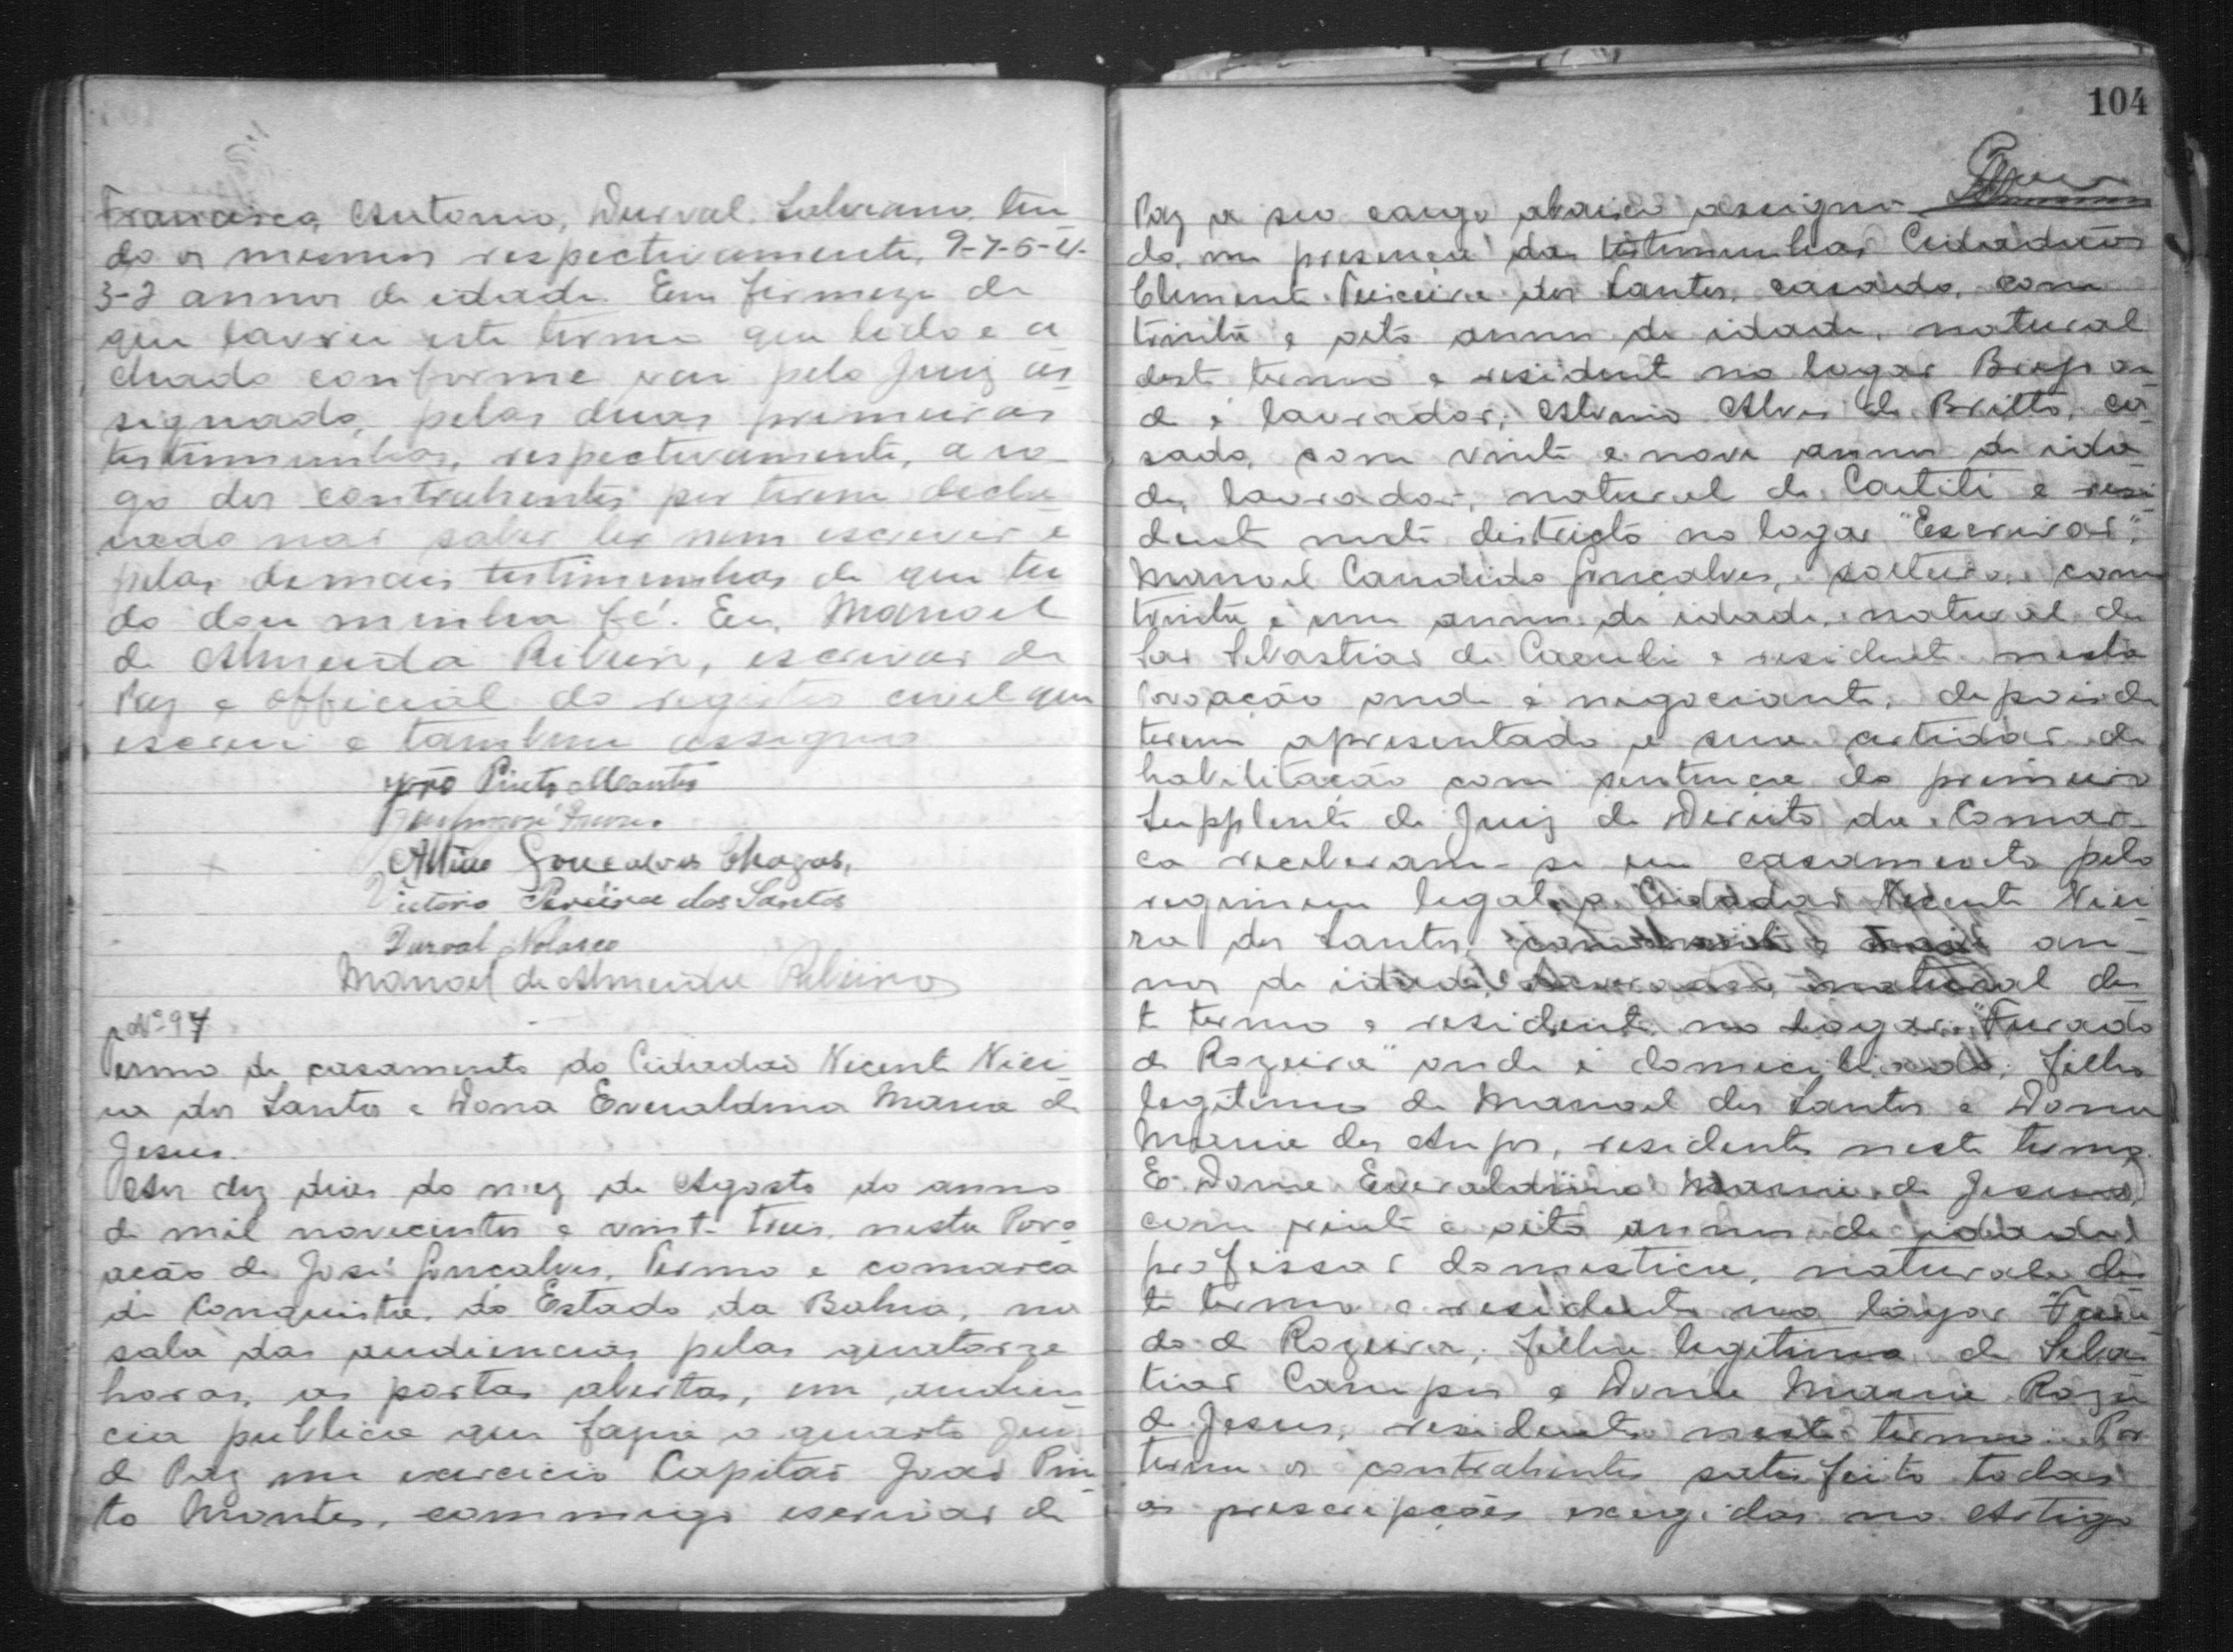 Francisca, Antonio, Durval, Salviano, ten
do os mesmos respectivamente, 9-7-5-4-
3-2 annos de idade. Em firmeza de
que lavrei este termo que lido e a
chado conforme vai pelo Juiz as
signado, pelas duas primeiras
testimunhas, respectivamente, a ro
go dos contrahentes por terem decla
rado não saber ler nem escrever e
pelas demais testimunhas de que tu
do dou minha fé. Eu, Manoel
de Almeida Ribeiro, escrivão de
Paz e official do registro civil que
escrevi e tambem assigno
João Pinto Montes
Altino Gonçalves Chagas,
Victorio Pereira dos Santos
Durval Nolasco
Manoel de Almeida Ribeiro
Nº 97
Termo de casamento do Cidadão Vicente Viei
ra dos Santos e Dona Everaldina Maria de
Jesus.
Aos dez dias do mez de Agosto do anno
de mil novecentos e vinte tres, nesta Povo
ação de José Gonçalves, Termo e comarca
de Conquista, do Estado da Bahia, na
sala das audiencias pelas quatorze
horas, as portas abertas, em audien
cia publica que fazia o quarto Juiz
de Paz em exercicio Capitão João Pin
to Montes, commigo escrivão de
104
Paz a seu cargo abaixo assigna
do, na presença das testimunhas Cidadãos
Clemente Teixeira dos Santos, casado, com
trinta e oito annos de idade, natural
deste termo e residente no logar Brejo on
de é lavrador; Alves de Britto, ca
sado, com vinte e nove annos de ida
de, lavrador, natural de Caetité e resi
dente neste districto no logar "Escrivão";
Manoel Candido Gonçalves, solteiro, com
trinta e um annos de idade, natural de
São Sebastião de Caculé e residente nesta
Povoação onde é negociante, depois de
terem apresentado a sua certidão de
habilitação com sentença do primeiro
Supplente de Juiz de Direito da Comar
ca receberam-se em casamento pelo
regimem legal, o Cidadão Vicente Viei
ra dos Santos, com an
nos de idade, lavrador, natural des
te termo e residente no logar "Furado
da Rozeira" onde é domiciliado, filho
legitimo de Manoel dos Santos e Dona
Maria dos Anjos, residentes neste termo.
E Dona Everaldina Maria de Jesus,
com vinte e oito annos de idade,
profissão domestica, natural des
te termo e residente no logar Fura
do da Rozeira, filha legitima de Sebas
tião Campos e Dona Maria Roza
de Jesus, residentes neste termo. Por
terem os contrahentes satisfeito todas
as prescripções exigidas no Artigo